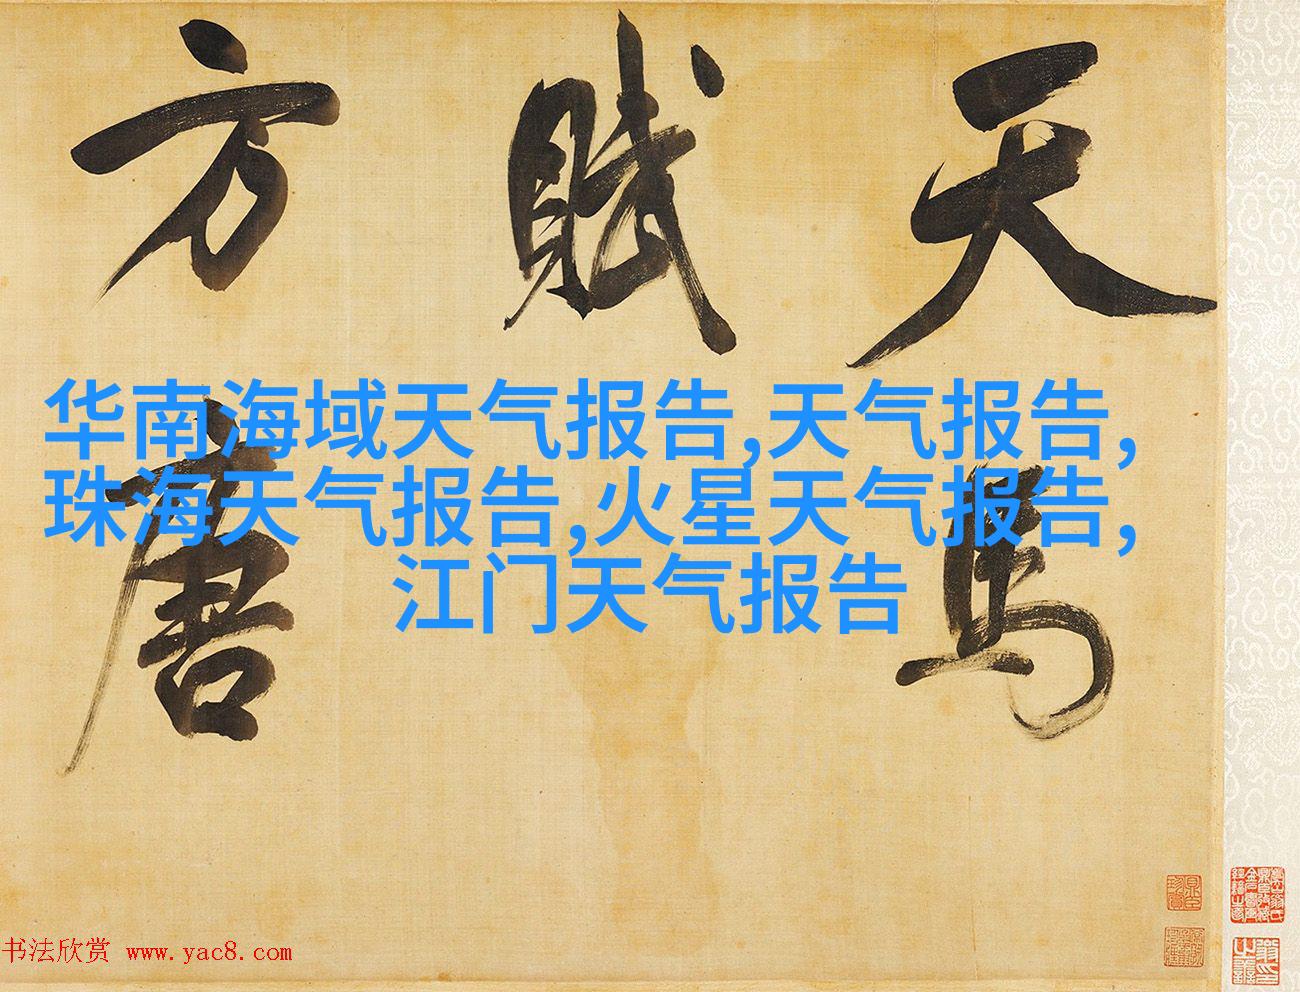 天馬
賦
方唐
华南海域天气报告,天气报告,
珠海天气报告,火星天气报告,
江门天气报告
书法欣赏 www.yac8.com